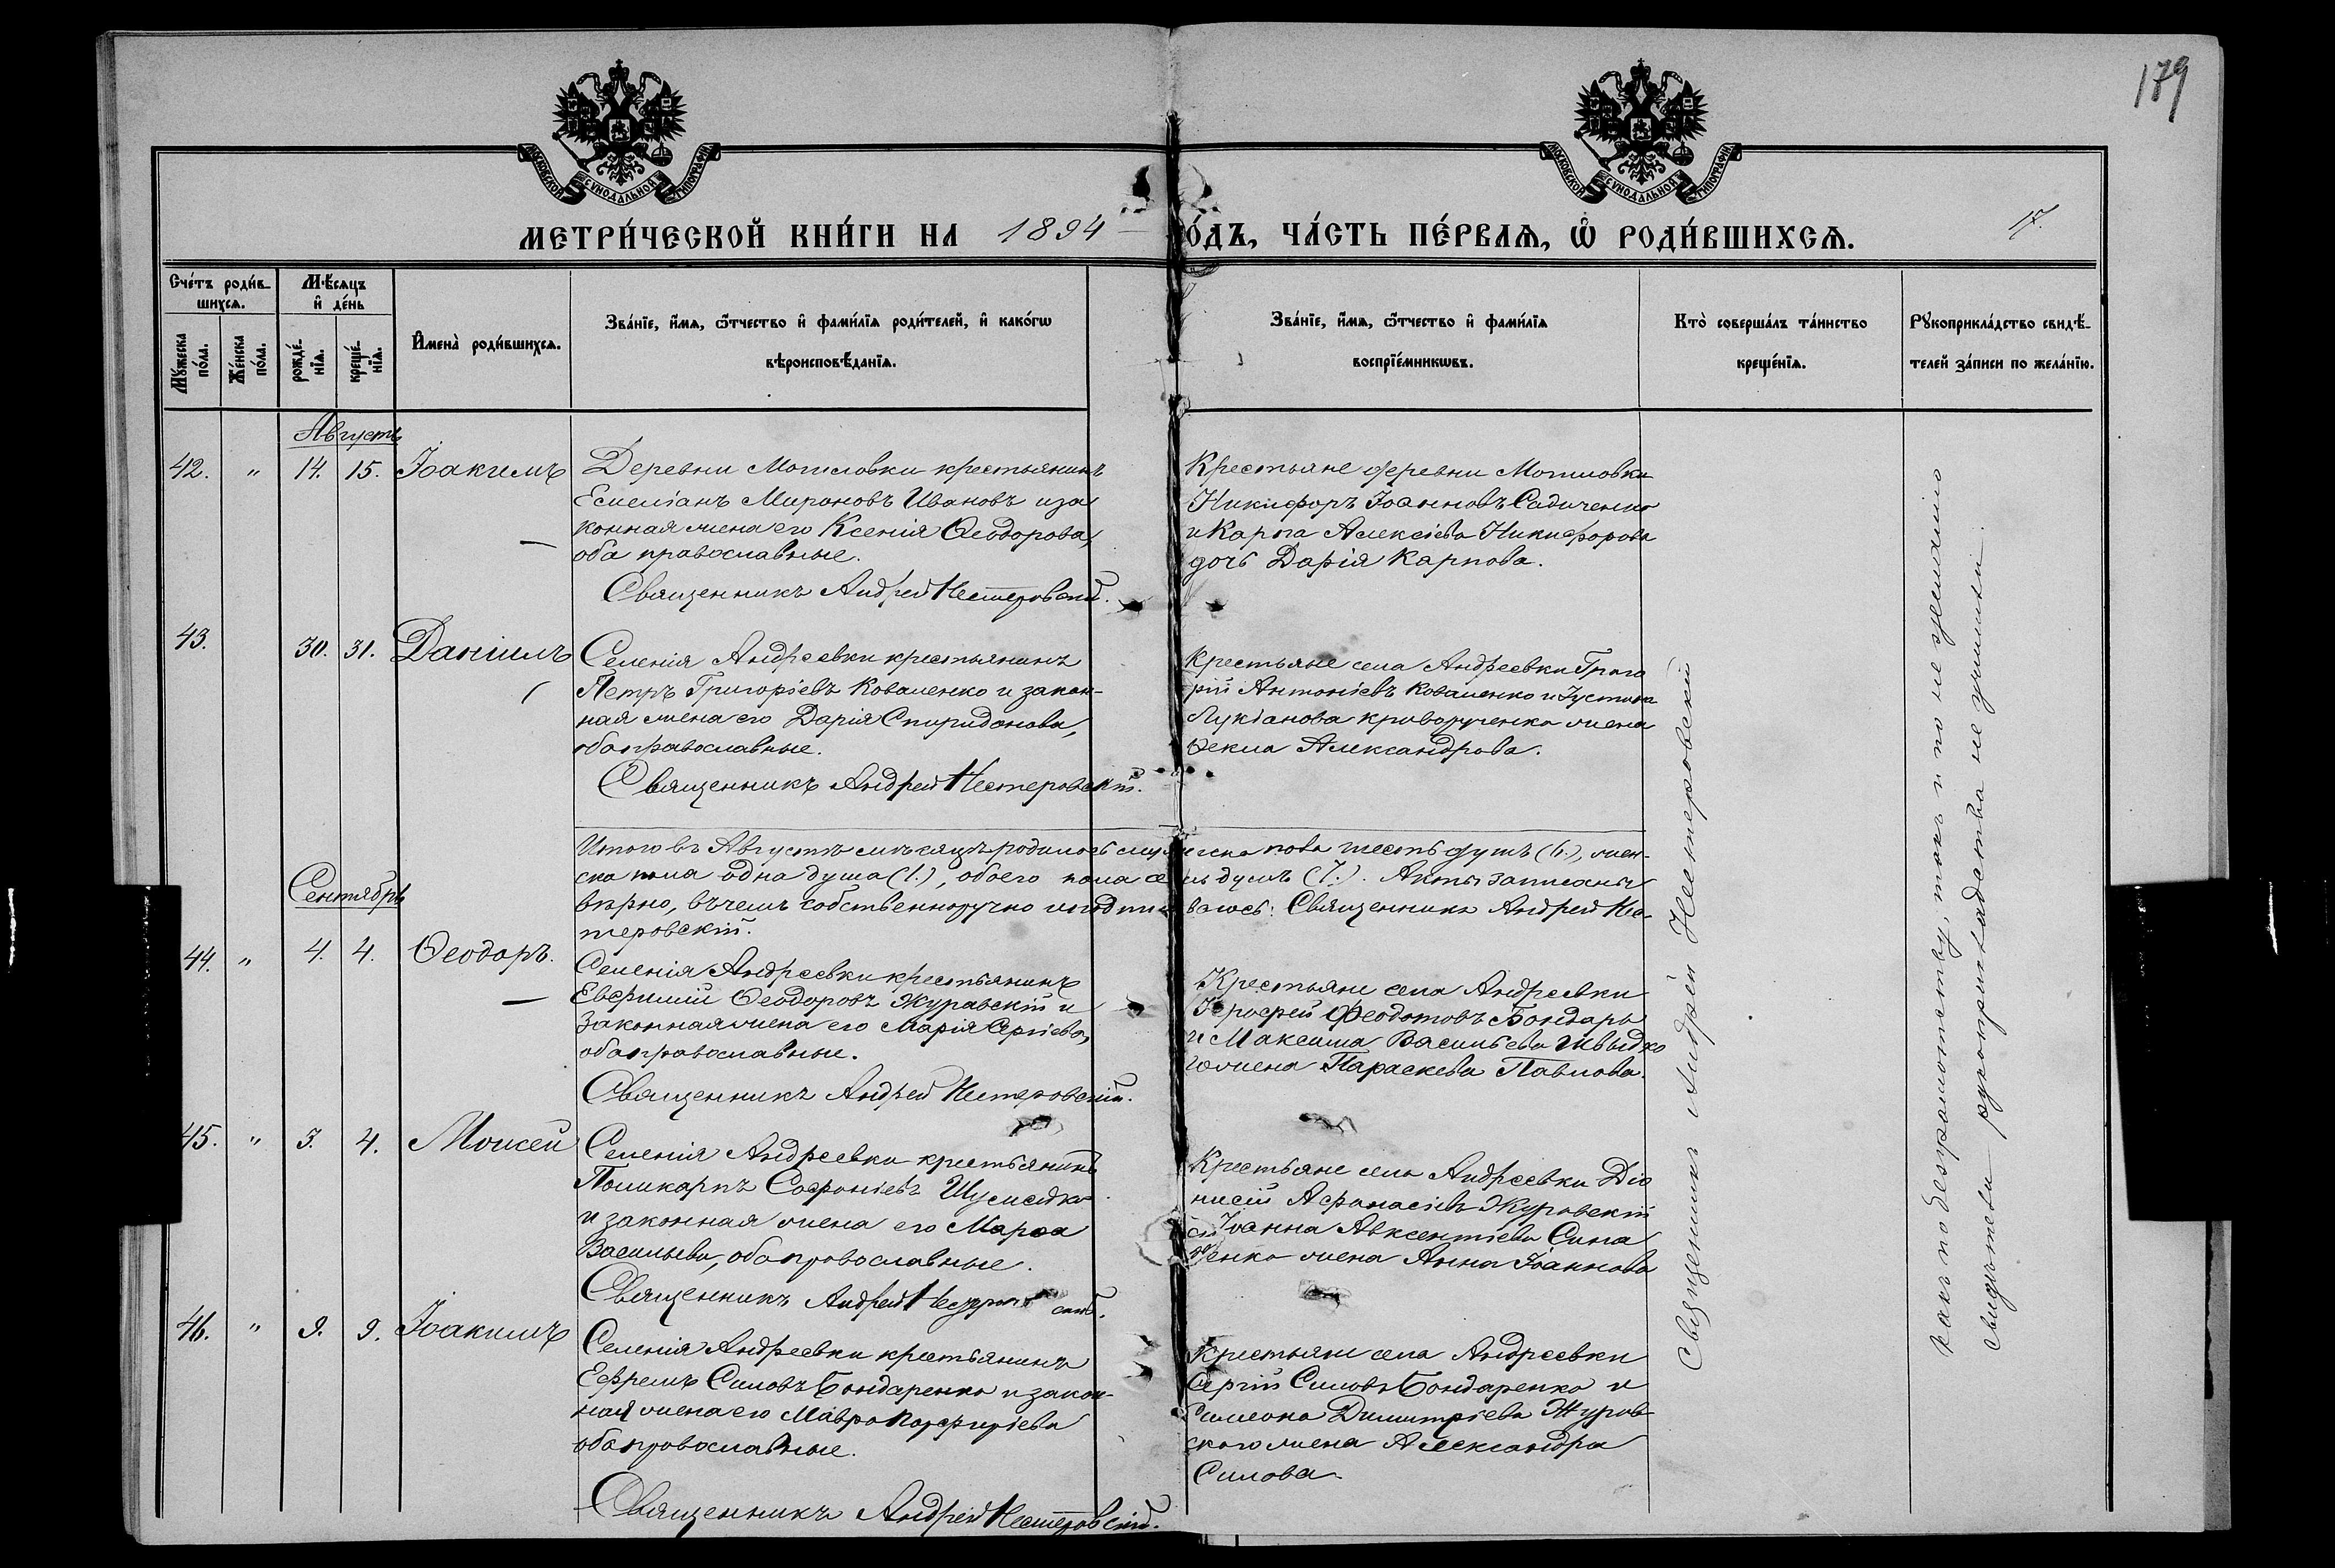 179
МОСКОВСКОЙ СУНОДАЛЬНОЙ ТИПОГРАФІИ
МОСКОВСКОЙ СУНОДАЛЬНОЙ ТИПОГРАФІИ
МЕТРИ́ЧЕСКОЙ КНИ́ГИ НА 1894 О́ДЪ, ЧА́СТЬ ПЕ́РВАѦ, Ѡ҆ РОДИ́ВШИХСѦ.
17.
Сче́тъ роди́в-
шихсѧ.
Мꙋ́жеска по́ла.
Же́нска по́ла.
Мѣ́сѧцъ и҆ де́нь
рожде́нїѧ.
креще́нїѧ.
И҆мена̀ роди́вшихсѧ.
Зва́нїе, и҆́мѧ, ѻ҆́тчество и҆ фами́лїѧ роди́телей, и҆ како́гѡ
вѣроисповѣ́данїѧ.
Зва́нїе, и҆́мѧ, ѻ҆́тчество и҆ фами́лїѧ
воспрїе́мникѡвъ.
Кто̀ соверша́лъ та́инство
креще́нїѧ.
Рꙋкоприкла́дство свидѣ́-
телей за́писи по жела́нїю.
Августъ
42. " 14. 15. Іоакимъ
Деревни Мотиловки крестьянинъ
Емеліанъ Мироновъ Ивановъ и за
конная жена его Ксенія Ѳеодорова,
оба православные.
Священникъ Андрей Нестеровскій.
Крестьяне деревни Мотиловки
Никифоръ Іоанновъ Садиченко
и Карпа Алексіева Никифорова
дочь Дарія Карпова.
43. 30. 31. Даніилъ
Селенія Андреевки крестьянинъ
Петръ Григоріевъ Коваленко и закон-
ная жена его Дарія Спиридонова,
оба православные.
Священникъ Андрей Нестеровскій.
Крестьяне села Андреевки Григо
рій Антоніевъ Коваленко и Іустина
Лукіанова Криворученка жена
Ѳекла Александрова.
Итого въ Августѣ мѣсяцѣ родилось мужеска пола шесть душъ (6.), жен-
ска пола одна душа (1.), обоего пола семь душъ (7.). Акты записаны
вѣрно, въ чемъ собственноручно и подписываюсь: Священникъ Андрей Нес-
теровскій.
Сентябрь
44. " 4. 4. Ѳеодоръ.
Селенія Андреевки крестьянинъ
Евфимій Ѳеодоровъ Журавскій и
законная жена его Марія Сергіева,
оба православные.
Священникъ Андрей Нестеровскій.
Крестьяне села Андреевки
Іероѳей Ѳеодотовъ Бондарь
и Максима Васильева Швыдко
го жена Параскева Павлова.
45. " 3. 4. Моисей
Селенія Андреевки крестьянинъ
Поликарпъ Софроніевъ
и законная жена его Марѳа
Васильева, оба православные.
Священникъ Андрей Нестеровскій.
Крестьяне села Андреевки Діо
нисій Аѳанасіевъ Журовскій
и Іоанна Авксентіева
ченко жена Анна Іоаннова
46. " 9. 9. Іоакимъ
Селенія Андреевки крестьянинъ
Ефремъ Силовъ Бондаренко и закон-
ная жена его Мавра Порфиріева
оба православные.
Священникъ Андрей Нестеровскій.
Крестьяне села Андреевки
Сергій Силовъ Бондаренко и
Симеона Димитріева Журов-
скаго жена Александра
Силова.
Священникъ Андрей Нестеровскій
какъ по безграмотству, такъ и по не желанію
свидѣтели рукоприкладства не учинили.